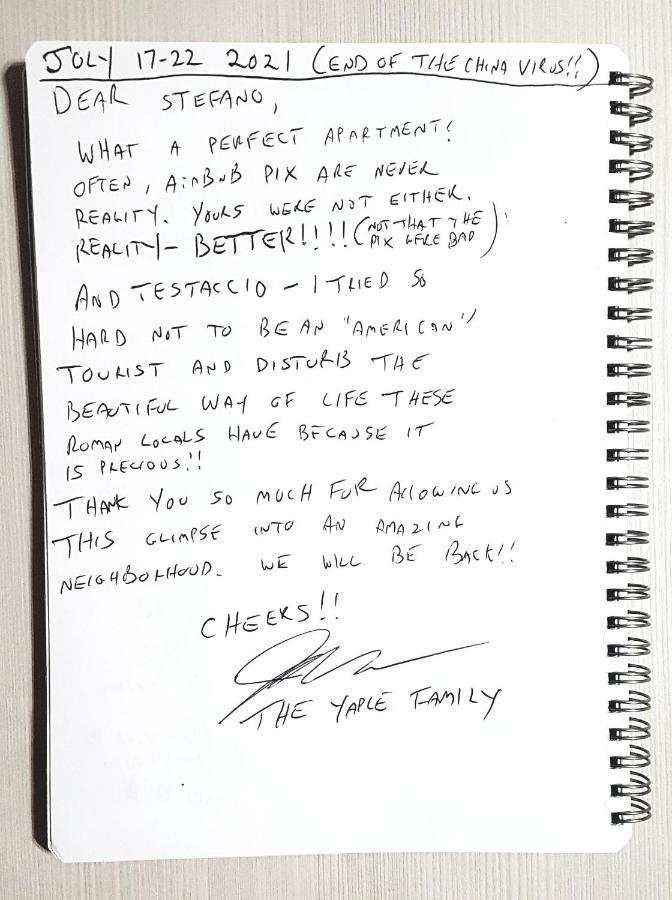 JULY 17-22 2021 (END OF THE CHINA VIRUS!!)
DEAR STEFANO,
WHAT A PERFECT APARTMENT!
OFTEN, AirBNB PIX ARE NEVER
REALITY. YOURS WERE NOT EITHER.
REALITY- BETTER!!!! (NOT THAT THE
PIX WERE BAD)
AND TESTACCIO - I TRIED SO
HARD NOT TO BE AN "AMERICAN"
TOURIST AND DISTURB THE
BEAUTIFUL WAY OF LIFE THESE
ROMAN LOCALS HAVE BECAUSE IT
IS PRECIOUS!!
THANK YOU SO MUCH FOR ALLOWING US
THIS GLIMPSE INTO AN AMAZING
NEIGHBORHOOD. WE WILL BE BACK!!
CHEERS!!
THE YAPLE FAMILY